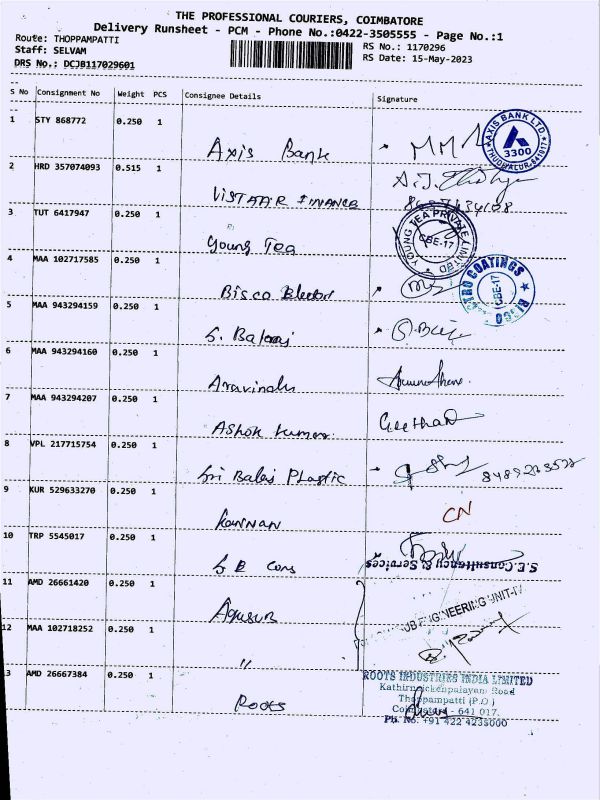 THE PROFESSIONAL COURIERS, COIMBATORE
Delivery Runsheet - PCM - Phone No.:0422-3505555 - Page No.:1
Route: THOPPAMPATTI
Staff: SELVAM
DRS No.: DCJB117029601
RS No.: 1170296
RS Date: 15-May-2023
S No Consignment No Weight PCS Consignee Details Signature
1 STY 868772 0.250 1 Axis Bank
AXIS BANK LTD
3300
2 HRD 357074093 0.515 1 VISTAAR FINANCE
3 TUT 6417947 0.250 1 Young Tea
YOUNG TEA PRIVATE LIMITED
CBE-17
4 MAA 102717585 0.250 1 Bisco
COATINGS
CBE-17
5 MAA 943294159 0.250 1 S. Balaraj
6 MAA 943294160 0.250 1
7 MAA 943294207 0.250 1 Ashok Kumar
8 VPL 217715754 0.250 1 Sri Balaji Plastic
9 KUR 529633270 0.250 1 Kannan CN
10 TRP 5545017 0.250 1 S E Cons
S.E.Consultancy & Services
11 AMD 26661420 0.250 1
ENGINEERING UNIT-IV
12 MAA 102718252 0.250 1 "
13 AMD 26667384 0.250 1 Roots
ROOTS INDUSTRIES INDIA LIMITED
Kathirnaickenpalayam Road
Thoppampatti (P.O)
Coimbatore - 641 017.
Ph. No. +91 422 4235000